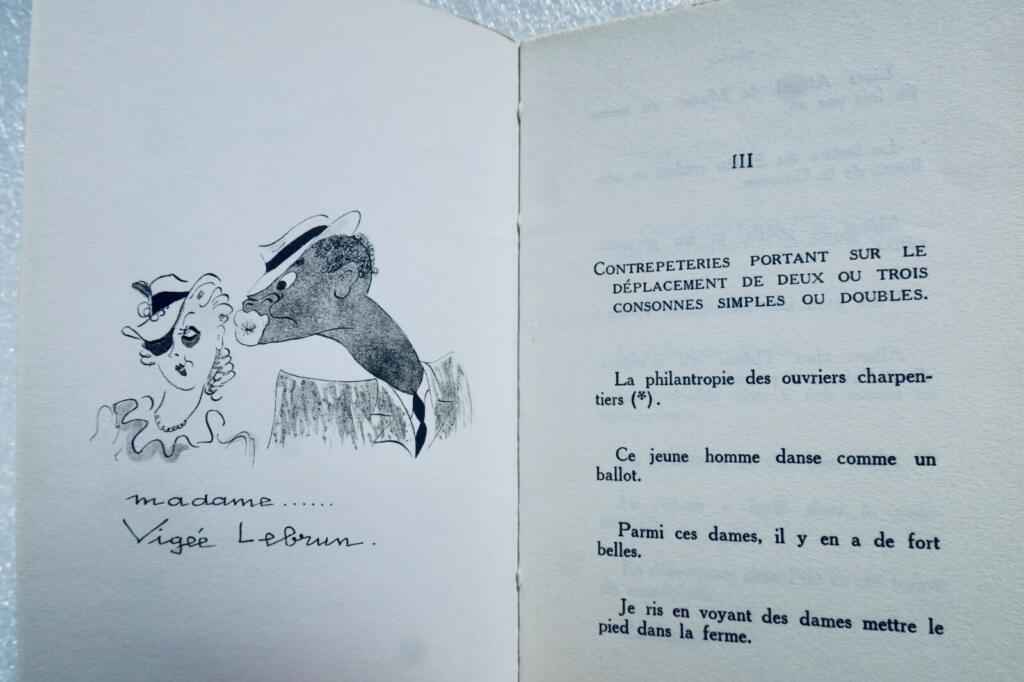 madame......
Vigée Lebrun.
III
CONTREPETERIES PORTANT SUR LE
DÉPLACEMENT DE DEUX OU TROIS
CONSONNES SIMPLES OU DOUBLES.
La philantropie des ouvriers charpen-
tiers (*).
Ce jeune homme danse comme un
ballot.
Parmi ces dames, il y en a de fort
belles.
Je ris en voyant des dames mettre le
pied dans la ferme.